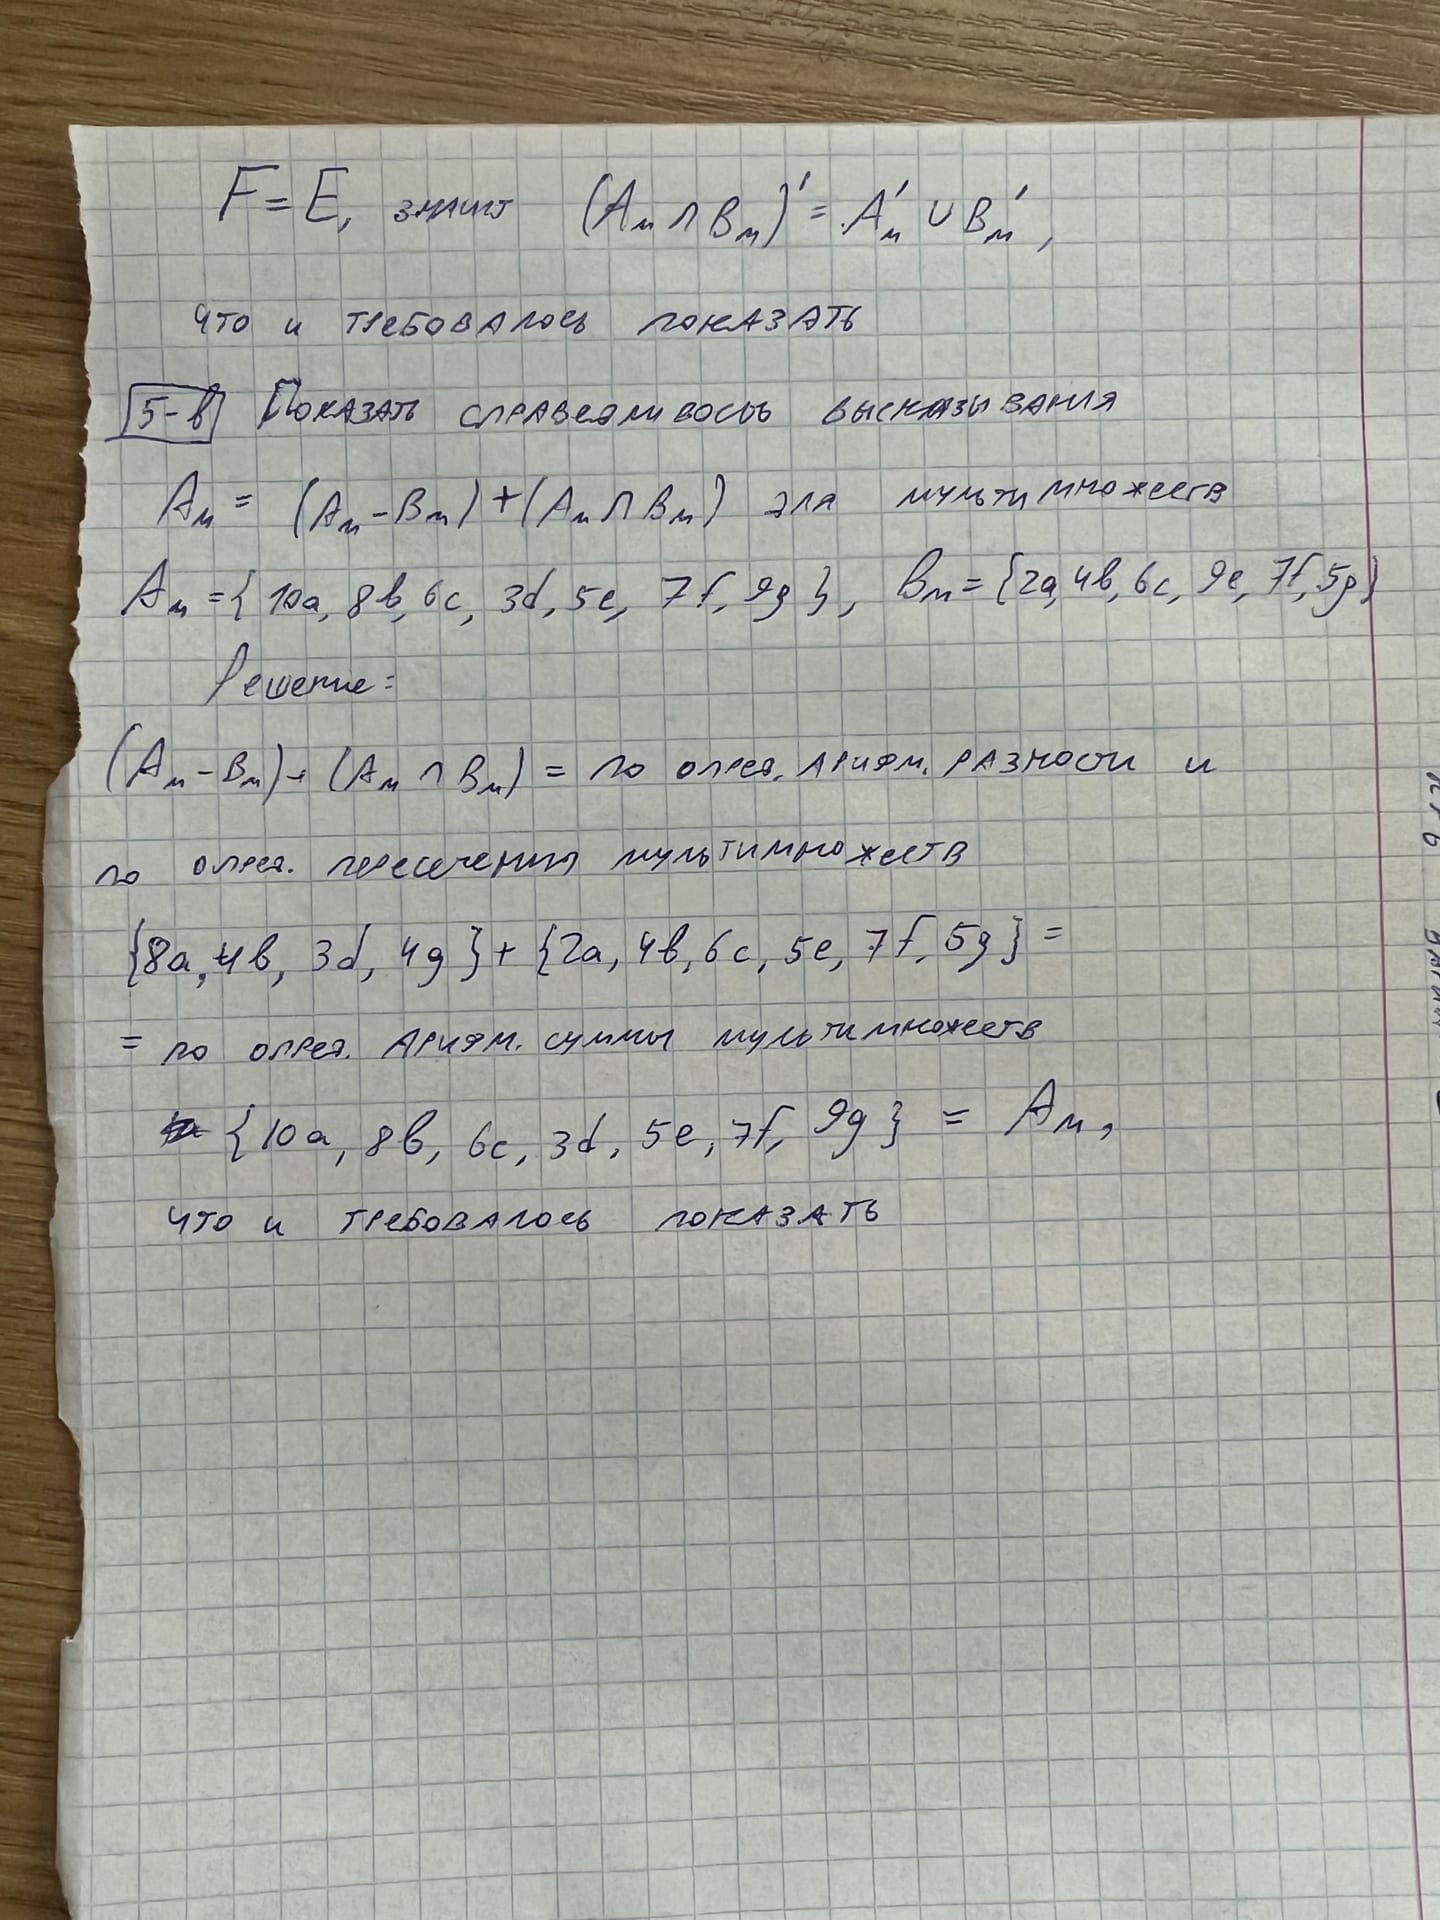 F = E, значит (Aм ∩ Bм)' = Aм' ∪ Bм',
что и требовалось показать
5-в Показать справедливость высказывания
Aм = (Aм - Bм) + (Aм ∩ Bм) для мультимножеств
Aм = {10a, 8b, 6c, 3d, 5e, 7f, 9g}, Bм = {2a, 4b, 6c, 9e, 7f, 5g}
Решение:
(Aм - Bм) + (Aм ∩ Bм) = по опред. арифм. разности и
по опред. пересечения мультимножеств
{8a, 4b, 3d, 4g} + {2a, 4b, 6c, 5e, 7f, 5g} =
= по опред. арифм. суммы мультимножеств
{10a, 8b, 6c, 3d, 5e, 7f, 9g} = Aм,
что и требовалось показать